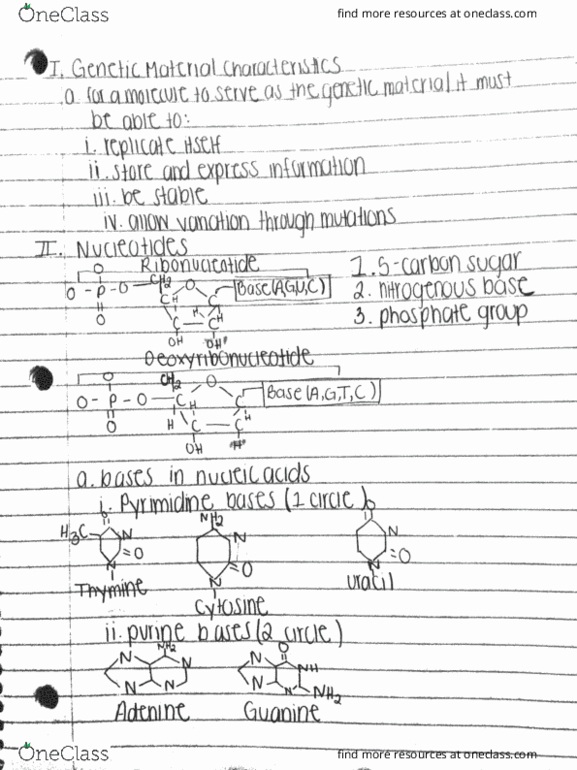 OneClass
find more resources at oneclass.com
I. Genetic Material Characteristics
a. for a molecule to serve as the genetic material it must
be able to:
i. replicate itself
ii. store and express information
iii. be stable
iv. allow variation through mutations
II. Nucleotides
Ribonucleotide
1. 5-carbon sugar
2. nitrogenous base
3. phosphate group
O O - P - O - CH2 O C Base(A,G,U,C)
O C H H C H C
OH OH
Deoxyribonucleotide
O CH2 O
O - P - O - C H C Base(A,G,T,C)
O H C C H
OH H
a. bases in nucleic acids
i. Pyrimidine bases (1 circle)
H3C O N =O N Thymine
NH2 N =O N Cytosine
O N =O N uracil
ii. purine bases (2 circle)
N NH2 N N N Adenine
N O NH N N NH2 Guanine
OneClass
find more resources at oneclass.com